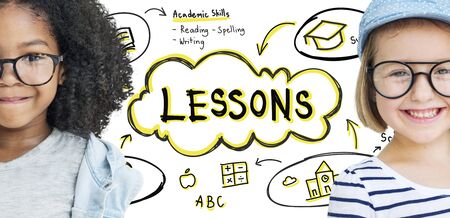 Academic Skills
- Reading - Spelling
- Writing
LESSONS
ABC